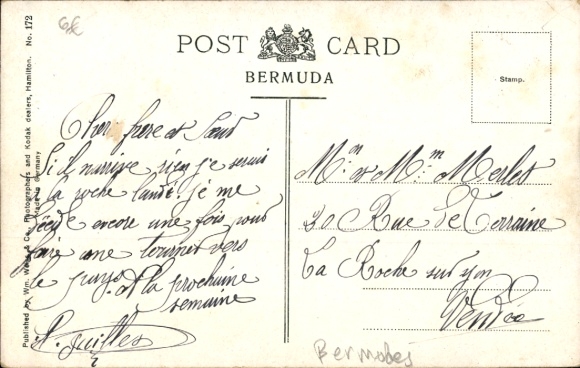 6f
POST CARD
BERMUDA
Stamp.
Published by Wm. Weiss & Co. Photographers and Kodak dealers, Hamilton. No. 172
Made in Germany
Cher frere et Sœur
Si il n'arrive rien je serai
la roche lundi. Je me
décide encore une fois pour
faire une tournée vers
le pays. A la prochaine
semaine
Mr et Mme Merlet
30 Rue de Lorraine
La Roche sur yon
Vendée
Bermudes